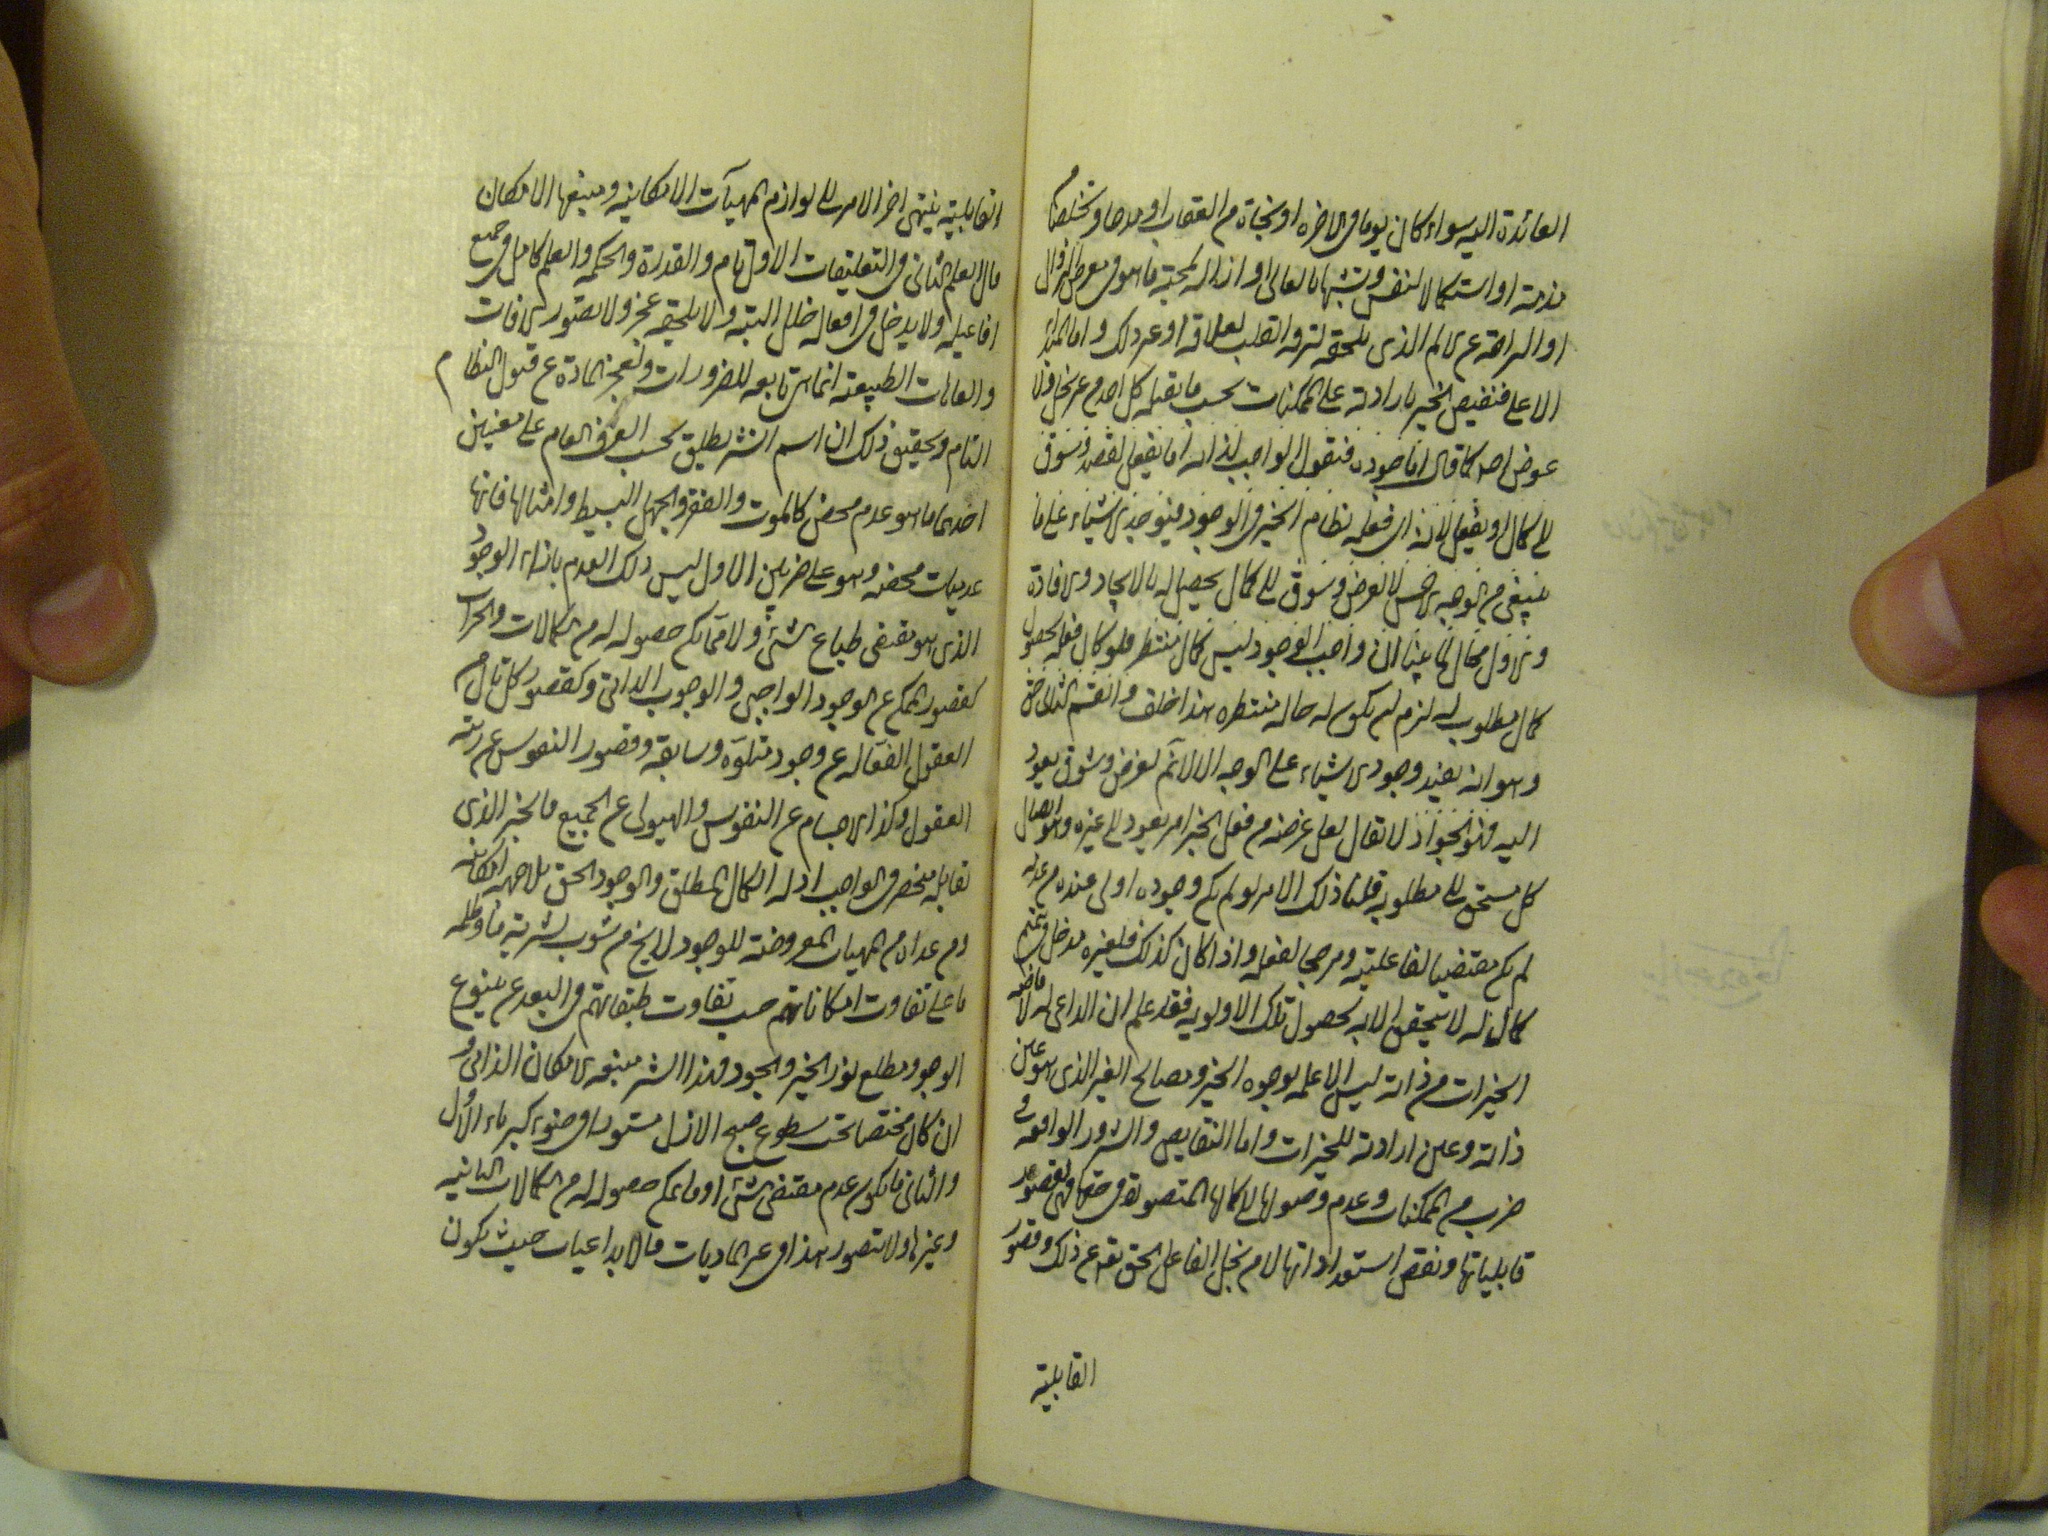 العائدة اليه سواء كان يوما فى الاخره او نجاة من العقاب او مدحا و تخلصا من
مذمة او استكمالا لنفس و تشبها بالعالى او ازاله لمحبة ما هو فى معرض الزوال
او الراحة عن الالم الذى يلحقه لرقه القلب لعلاقه او غير ذلك و اما المبداء
الاعلى فتفيض الخير بارادته على الممكنات بحسب ما يقبله كل احد من غير بخل ولا
عوض احد كما قال فنقول الواجب لذاته اما يفعل لقصد و شوق
الى كمال او يفعل لانه نظام الخير فى الوجود فيوجد الاشياء على ما
ينبغى من الوجه الاحسن لا لغرض و شوق الى كمال يحصل له بالايجاد والافادة
والاول محال لما بينا ان واجب الوجود ليس كمال منتظر فلو كان فعله لحصول
كمال مطلوب له لزم ان يكون له حاله منتظره هذا خلف والقسم الثانى حق
وهو انه يفيد وجود الاشياء على الوجه الا لاتم لغرض و شوق يعود
اليه فهو الجواد لا يقال لعل غرضه من فعل الخير امر يعود الى غيره وهو ايصال
كل مستحق الى مطلوبه قلنا ذلك الامر لو لم يكن وجوده اولى عنده من عدمه
لم يكن مقتضيا لفاعليته ومرجحا لفعله واذا كان كذلك فلغيره مدخل فى تتميم
كمال له لا يتحقق الا به لحصول تلك الاولويه فقد علم ان الداعى له لافاضه
الخيرات من ذاته ليس الا علمه بوجوه الخير ومصالح الغير الذى هو عين
ذاته وعين ارادته للخيرات واما النقايص والشرور الواقعه فى
ضرب من الممكنات وعدم وصولها الى كمالها المتصورة فى حقها فهى لقصور
قابلياتها ونقص استعداداتها لا من بخل الفاعل الحق تقدس عن ذلك وقصور
القابلية
القابلية ينتهى اخر الامر الى لوازم المهيآت الامكانيه ومنبعها الامكان
قال المعلم الثانى فى التعليقات الاول تام والقدرة والحكمه والعلم كامل فى جميع
افاعيله ولا يدخل فى افعاله خلل البته ولا يلحقه عجز ولا قصور والافات
والعاهات الطبيعية انما هى تابعه للضرورات ولعجز المادة عن قبول النظام
التام وتحقيق ذلك ان اسم الشر يطلق بحسب العرف العام على معنيين
احدى ما هو عدم محض كالموت والفقر والجهل البسيط وامثالها فانها
عدميات محضه وهو على ضربين الاول ليس ذلك العدم بازاء الوجود
الذى هو مقتضى طباع الشىء ولا مما يمكن حصوله له من الكمالات والخيرات
كقصور الممكن عن الوجود الواجبى والوجوب الذاتى وكقصور كل تال من
العقول الفعاله عن وجود متلوه وسابقه وقصور النفوس عن رتبة
العقول وكذا الاجسام عن النفوس والهيولى عن الجميع فالخير الذى
تقابله منحصر فى الواجب اذ له الكمال المطلق والوجود الحق بلا جهه امكانيه
ومن عداه من المهيات المعروضة للوجود لا يخ من شوب شرية ما وظلمه
ما على تفاوت امكاناتهم حسب تفاوت طبقاتهم فى البعد عن ينبوع
الوجود ومطلع نور الخير والجود فهذا الشر منبعه الامكان الذاتى و
ان كان مختفيا تحت سطوع صبح الازل مستورا فى ضوء كبرياء الاول
والثانى ما يكون عدم مقتضى الشىء او ما يمكن حصوله له من الكمالات الثانيه
وغيرها ولا يتصور هذا فى غير الماديات فالابداعيات حيث يكون